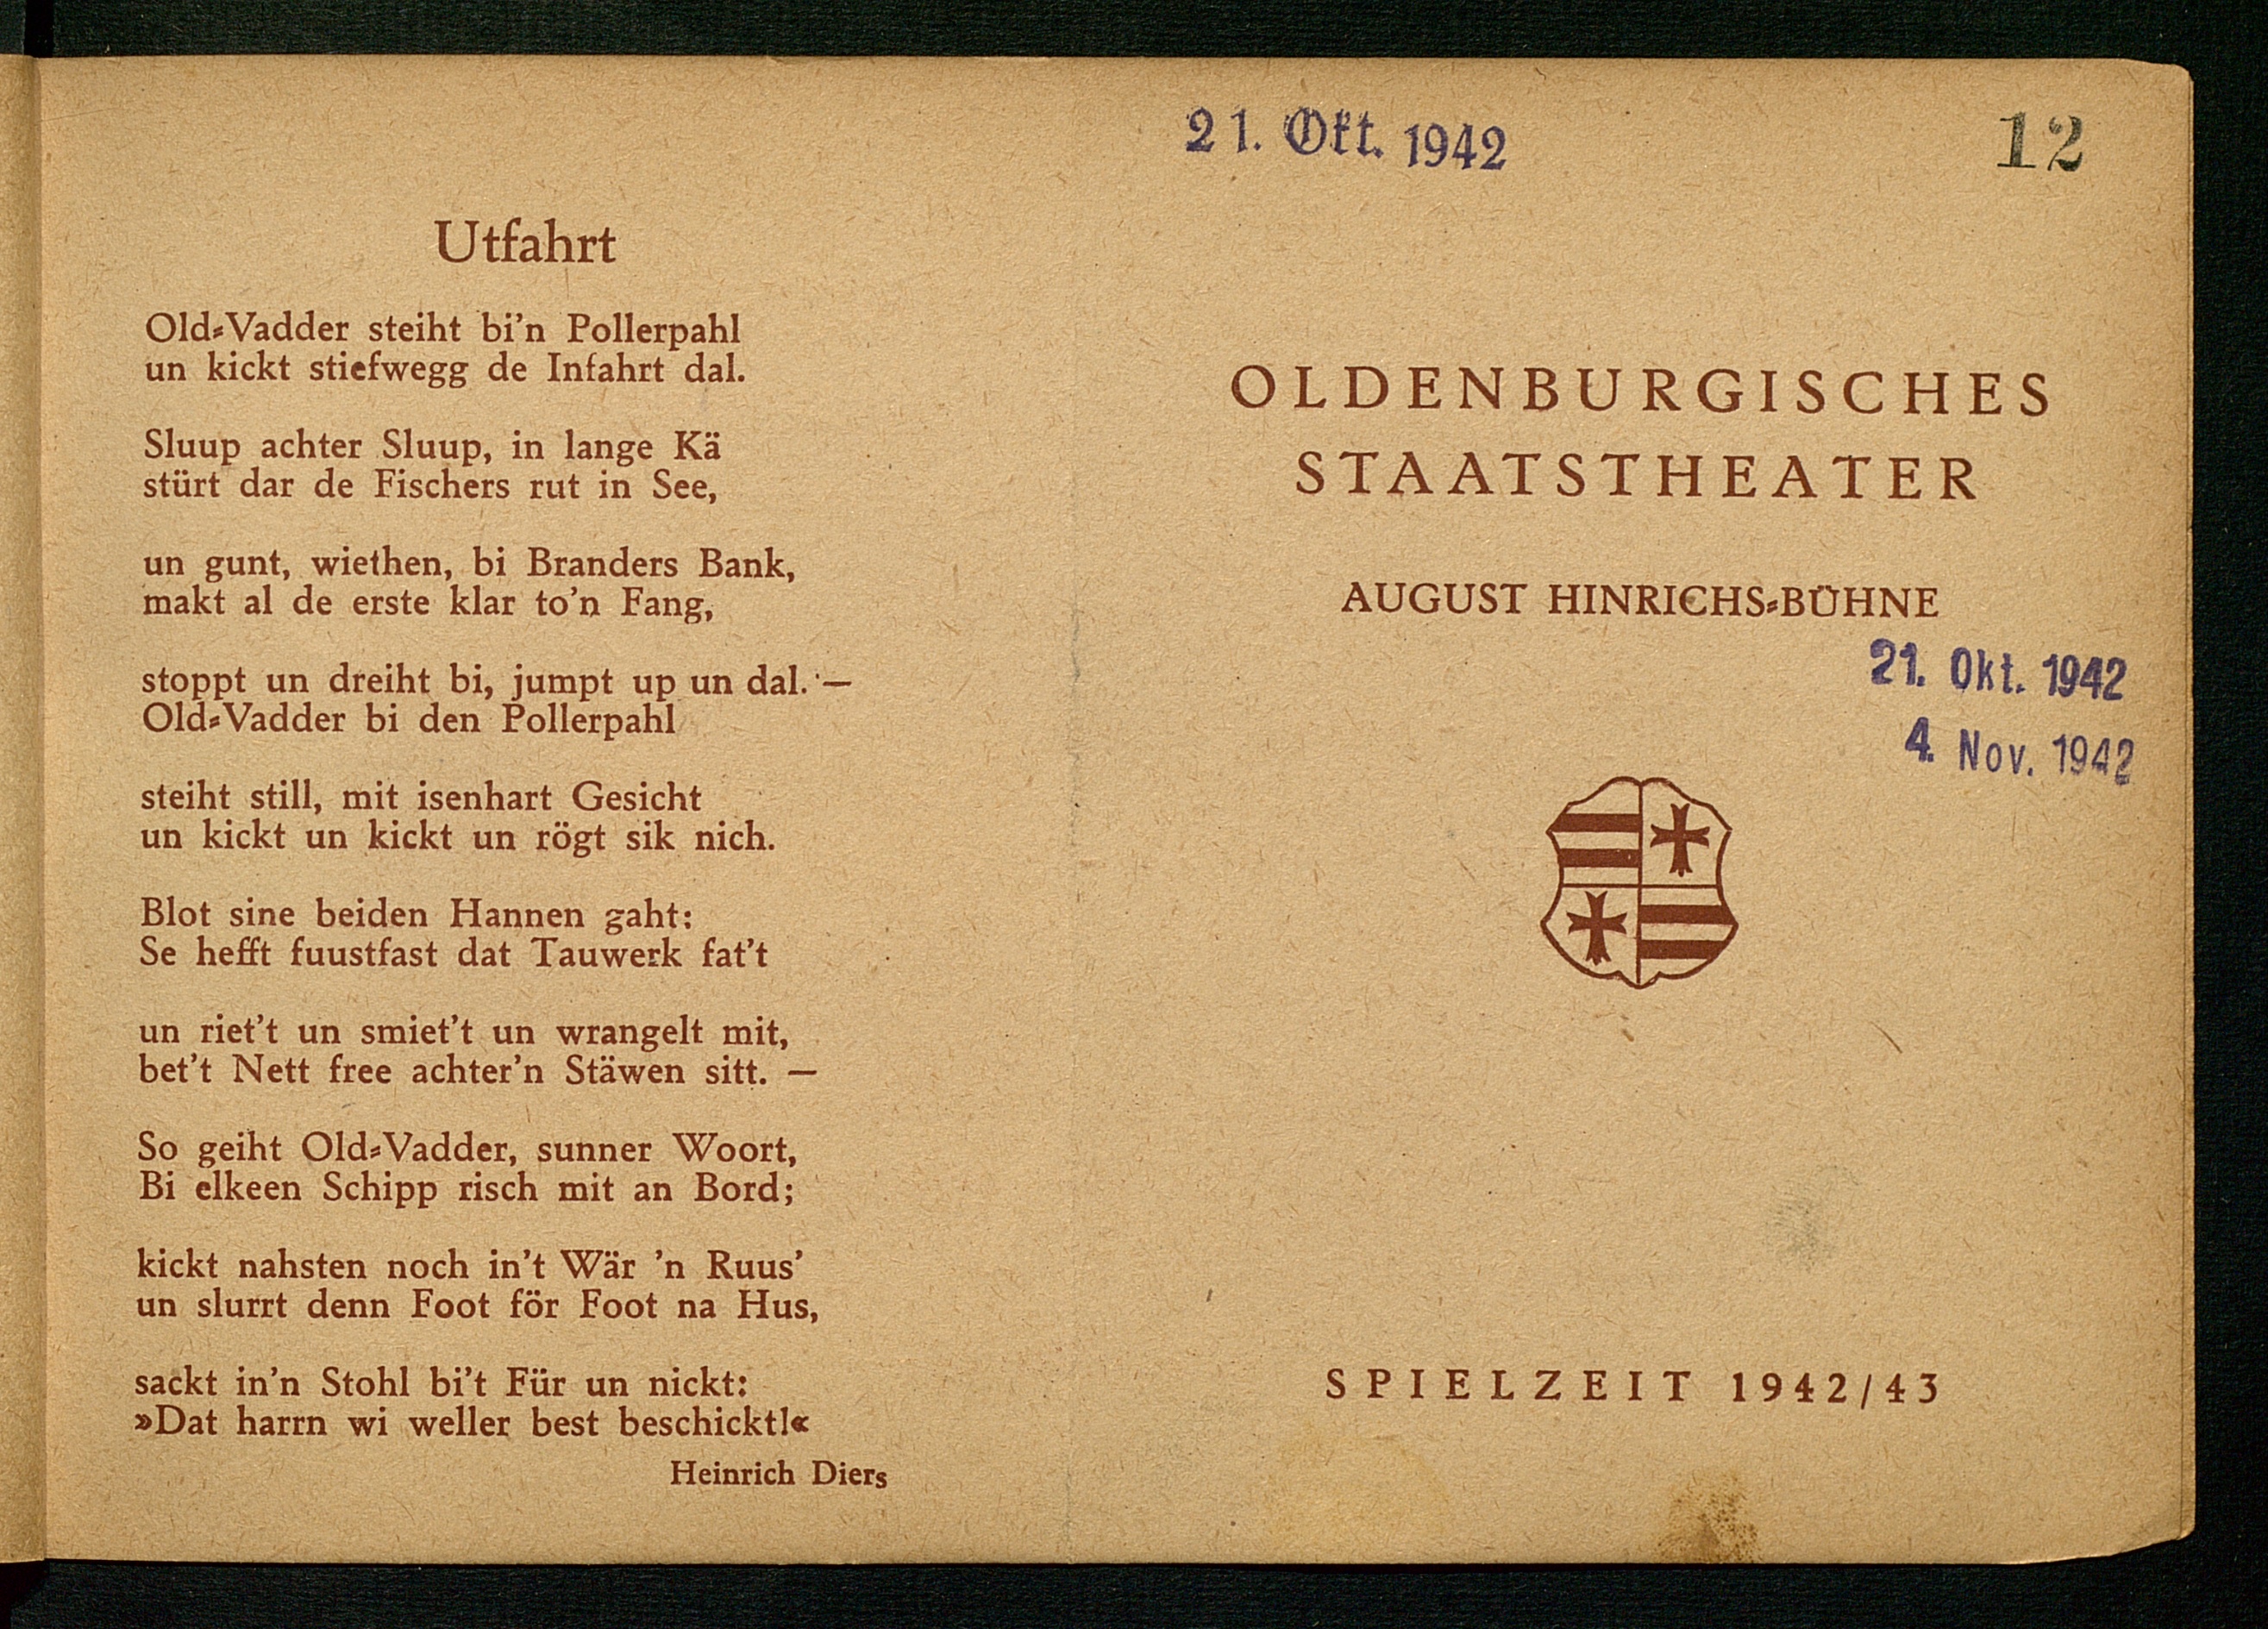 Utfahrt
Old-Vadder steiht bi'n Pollerpahl
un kickt stiefwegg de Infahrt dal.
Sluup achter Sluup, in lange Kä
stürt dar de Fischers rut in See,
un gunt, wiethen, bi Branders Bank,
makt al de erste klar to'n Fang,
stoppt un dreiht bi, jumpt up un dal. —
Old-Vadder bi den Pollerpahl
steiht still, mit isenhart Gesicht
un kickt un kickt un rögt sik nich.
Blot sine beiden Hannen gaht:
Se hefft fuustfast dat Tauwerk fat't
un riet't un smiet't un wrangelt mit,
bet't Nett free achter'n Stäwen sitt. —
So geiht Old-Vadder, sunner Woort,
Bi elkeen Schipp risch mit an Bord;
kickt nahsten noch in't Wär 'n Ruus'
un slurrt denn Foot för Foot na Hus,
sackt in'n Stohl bi't Für un nickt:
»Dat harrn wi weller best beschickt!«
Heinrich Diers
21. Okt. 1942
12
OLDENBURGISCHES
STAATSTHEATER
AUGUST HINRICHS-BÜHNE
21. Okt. 1942
4. Nov. 1942
SPIELZEIT 1942/43